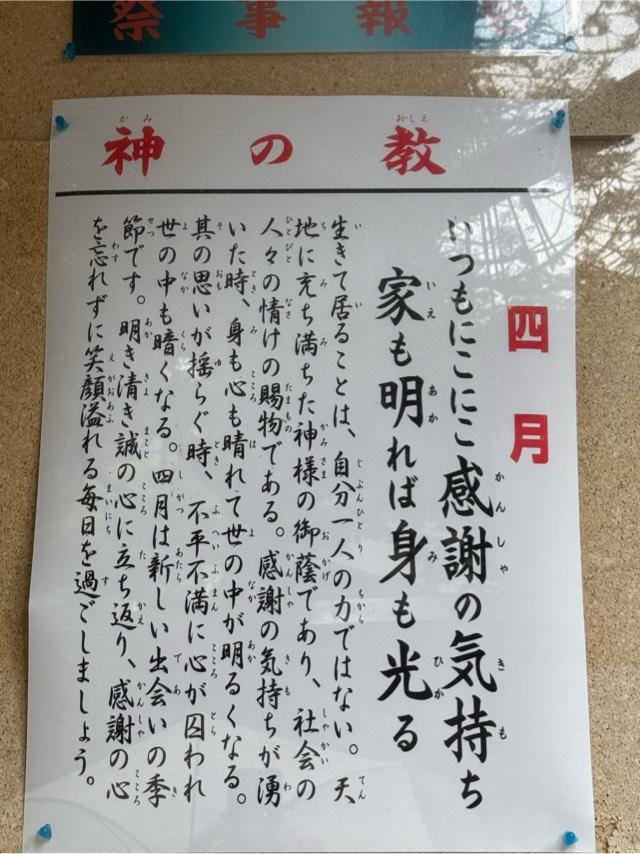 祭事報
神の教
四月
いつもにこにこ感謝の気持ち
家も明れば身も光る
生きて居ることは、自分一人の力ではない。天
地に充ち満ちた神様の御蔭であり、社会の
人々の情けの賜物である。感謝の気持ちが湧
いた時、身も心も晴れて世の中が明るくなる。
其の思いが揺らぐ時、不平不満に心が囚われ
世の中も暗くなる。四月は新しい出会いの季
節です。明き清き誠の心に立ち返り、感謝の心
を忘れずに笑顔溢れる毎日を過ごしましょう。